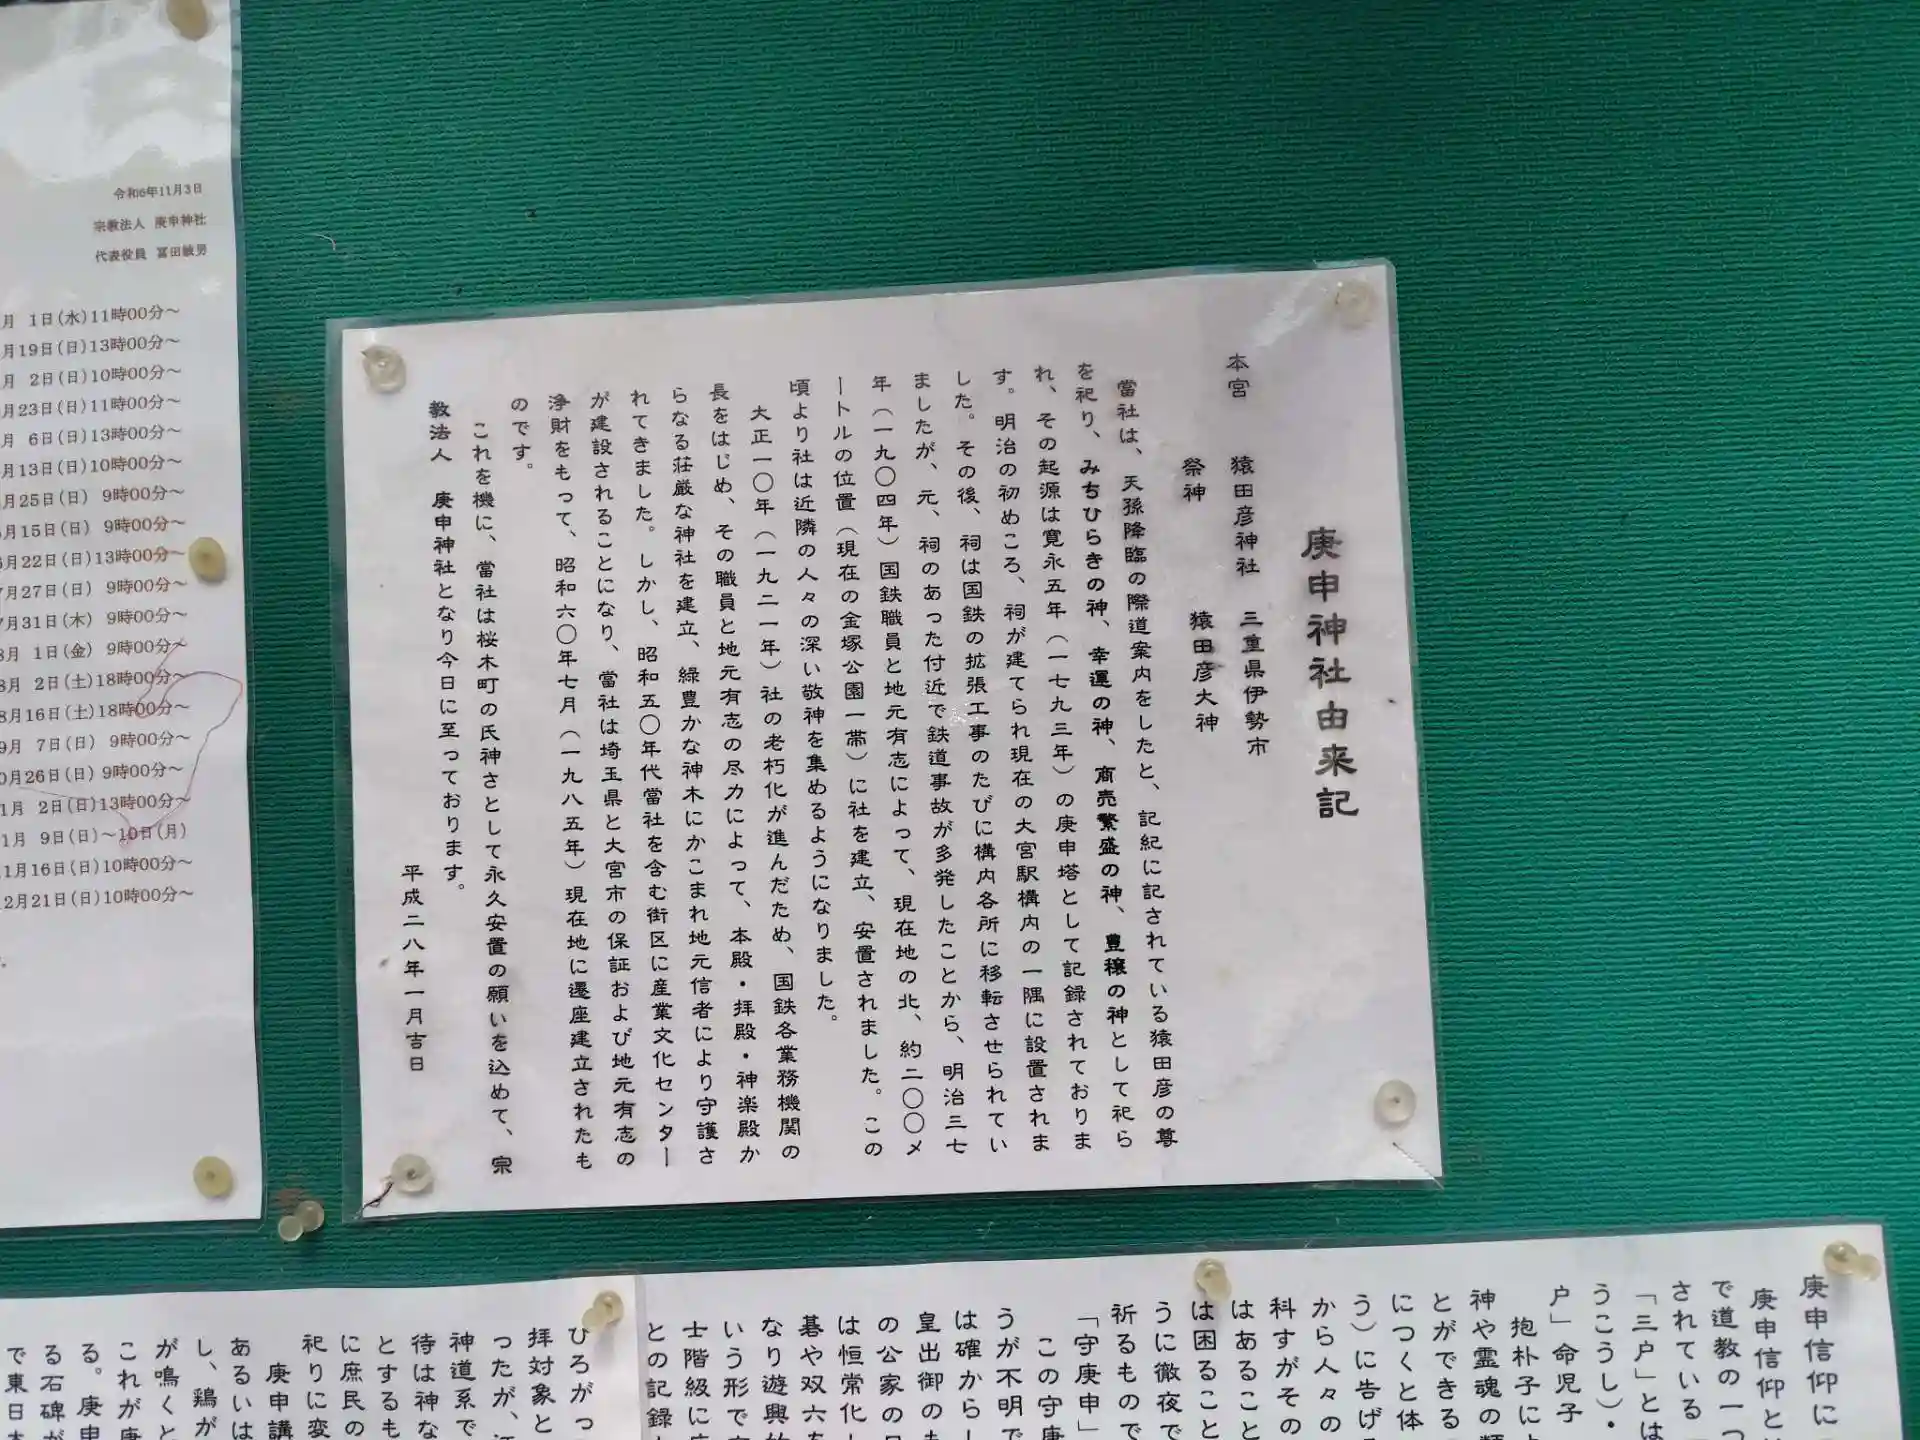 令和6年11月3日
宗教法人 庚申神社
代表役員 冨田敏男
月 1日(水)11時00分～
月19日(日)13時00分～
月 2日(日)10時00分～
月23日(日)11時00分～
月 6日(日)13時00分～
月13日(日)10時00分～
月25日(日) 9時00分～
月15日(日) 9時00分～
6月22日(日)13時00分～
7月27日(日) 9時00分～
7月31日(木) 9時00分～
8月 1日(金) 9時00分～
8月 2日(土)18時00分～
8月16日(土)18時00分～
9月 7日(日) 9時00分～
0月26日(日) 9時00分～
1月 2日(日)13時00分～
1月 9日(日)～10日(月)
11月16日(日)10時00分～
2月21日(日)10時00分～
庚申神社由来記
本宮 猿田彦神社 三重県伊勢市
祭神 猿田彦大神
當社は、天孫降臨の際道案内をしたと、記紀に記されている猿田彦の尊
を祀り、みちひらきの神、幸運の神、商売繁盛の神、豊穣の神として祀ら
れ、その起源は寛永五年（一七九三年）の庚申塔として記録されておりま
す。明治の初めころ、祠が建てられ現在の大宮駅構内の一隅に設置されま
した。その後、祠は国鉄の拡張工事のたびに構内各所に移転させられてい
ましたが、元、祠のあった付近で鉄道事故が多発したことから、明治三七
年（一九〇四年）国鉄職員と地元有志によって、現在地の北、約二〇〇メ
ートルの位置（現在の金塚公園一帯）に社を建立、安置されました。この
頃より社は近隣の人々の深い敬神を集めるようになりました。
大正一〇年（一九二一年）社の老朽化が進んだため、国鉄各業務機関の
長をはじめ、その職員と地元有志の尽力によって、本殿・拝殿・神楽殿か
らなる荘厳な神社を建立、緑豊かな神木にかこまれ地元信者により守護さ
れてきました。しかし、昭和五〇年代當社を含む街区に産業文化センター
が建設されることになり、當社は埼玉県と大宮市の保証および地元有志の
浄財をもって、昭和六〇年七月（一九八五年）現在地に遷座建立されたも
のです。
これを機に、當社は桜木町の氏神さとして永久安置の願いを込めて、宗
教法人 庚申神社となり今日に至っております。
平成二八年一月吉日
庚申信仰に
庚申信仰と
で道教の一つ
されている
「三戸」とは
うこうし）・
戸」命児子
抱朴子によ
神や霊魂の類
とができる
につくと体
う）に告げ
から人々の
科すがその
はあること
は困ること
うに徹夜で
祈るもので
「守庚申」
この守庚
うが不明で
は確からし
皇出御のも
の公家の日
は恒常化し
碁や双六を
なり遊興的
いう形で
士階級に
との記録
ひろがっ
拝対象と
ったが、
神道系で
待は神な
とするも
に庶民の
祀りに変
庚申講
あるいは
し、鶏が
が鳴くと
これが庚
る。庚申
る石碑が
で東日本